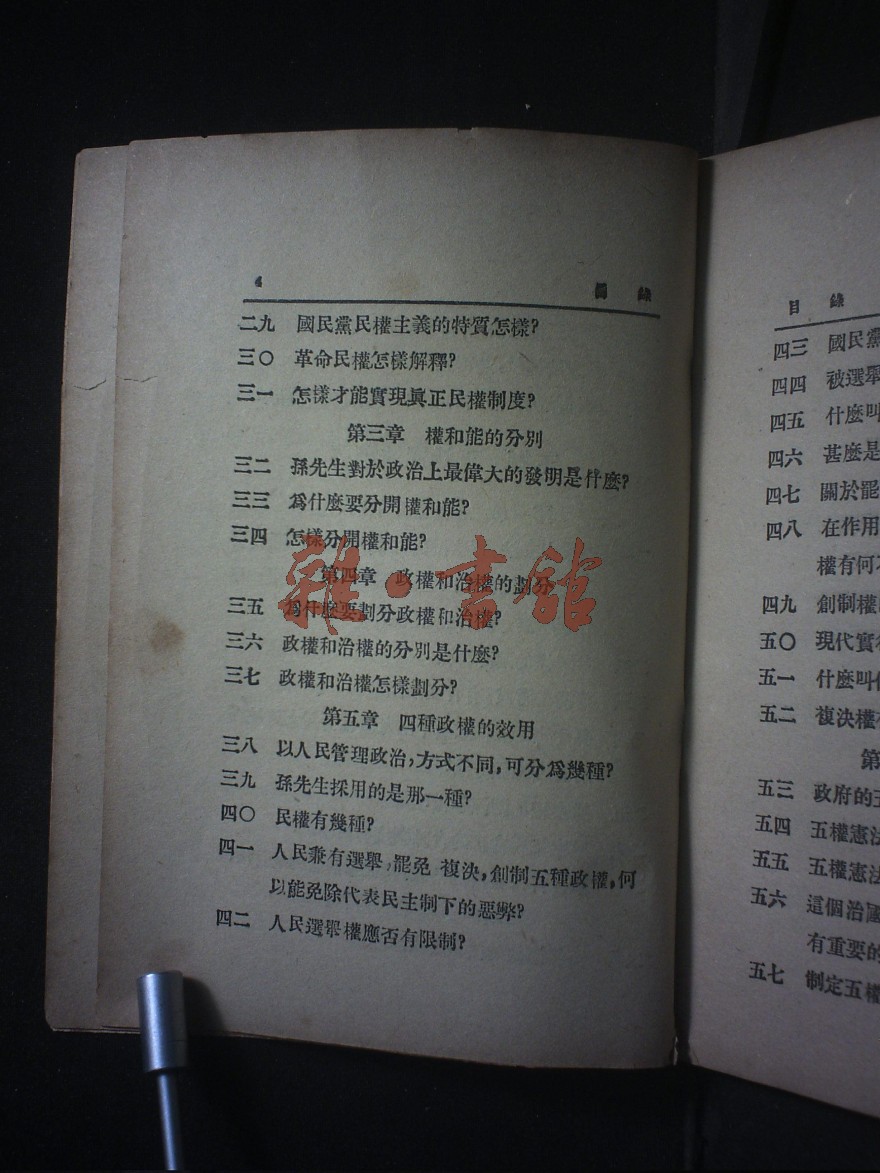 4 目錄
二九 國民黨民權主義的特質怎樣?
三〇 革命民權怎樣解釋?
三一 怎樣才能實現眞正民權制度?
第三章 權和能的分別
三二 孫先生對於政治上最偉大的發明是什麼?
三三 爲什麼要分開權和能?
三四 怎樣分開權和能?
第四章 政權和治權的劃分
三五 爲什麼要劃分政權和治權?
三六 政權和治權的分別是什麼?
三七 政權和治權怎樣劃分?
第五章 四種政權的效用
三八 以人民管理政治,方式不同,可分爲幾種?
三九 孫先生採用的是那一種?
四〇 民權有幾種?
四一 人民兼有選舉,罷免 複決,創制五種政權,何
以能免除代表民主制下的惡弊?
四二 人民選舉權應否有限制?
雜·書館
目錄
四三 國民黨
四四 被選舉
四五 什麼叫
四六 甚麼是
四七 關於罷
四八 在作用
權有何
四九 創制權
五〇 現代實
五一 什麼叫
五二 複決權
第
五三 政府的
五四 五權憲法
五五 五權憲法
五六 這個治國
有重要的
五七 制定五權